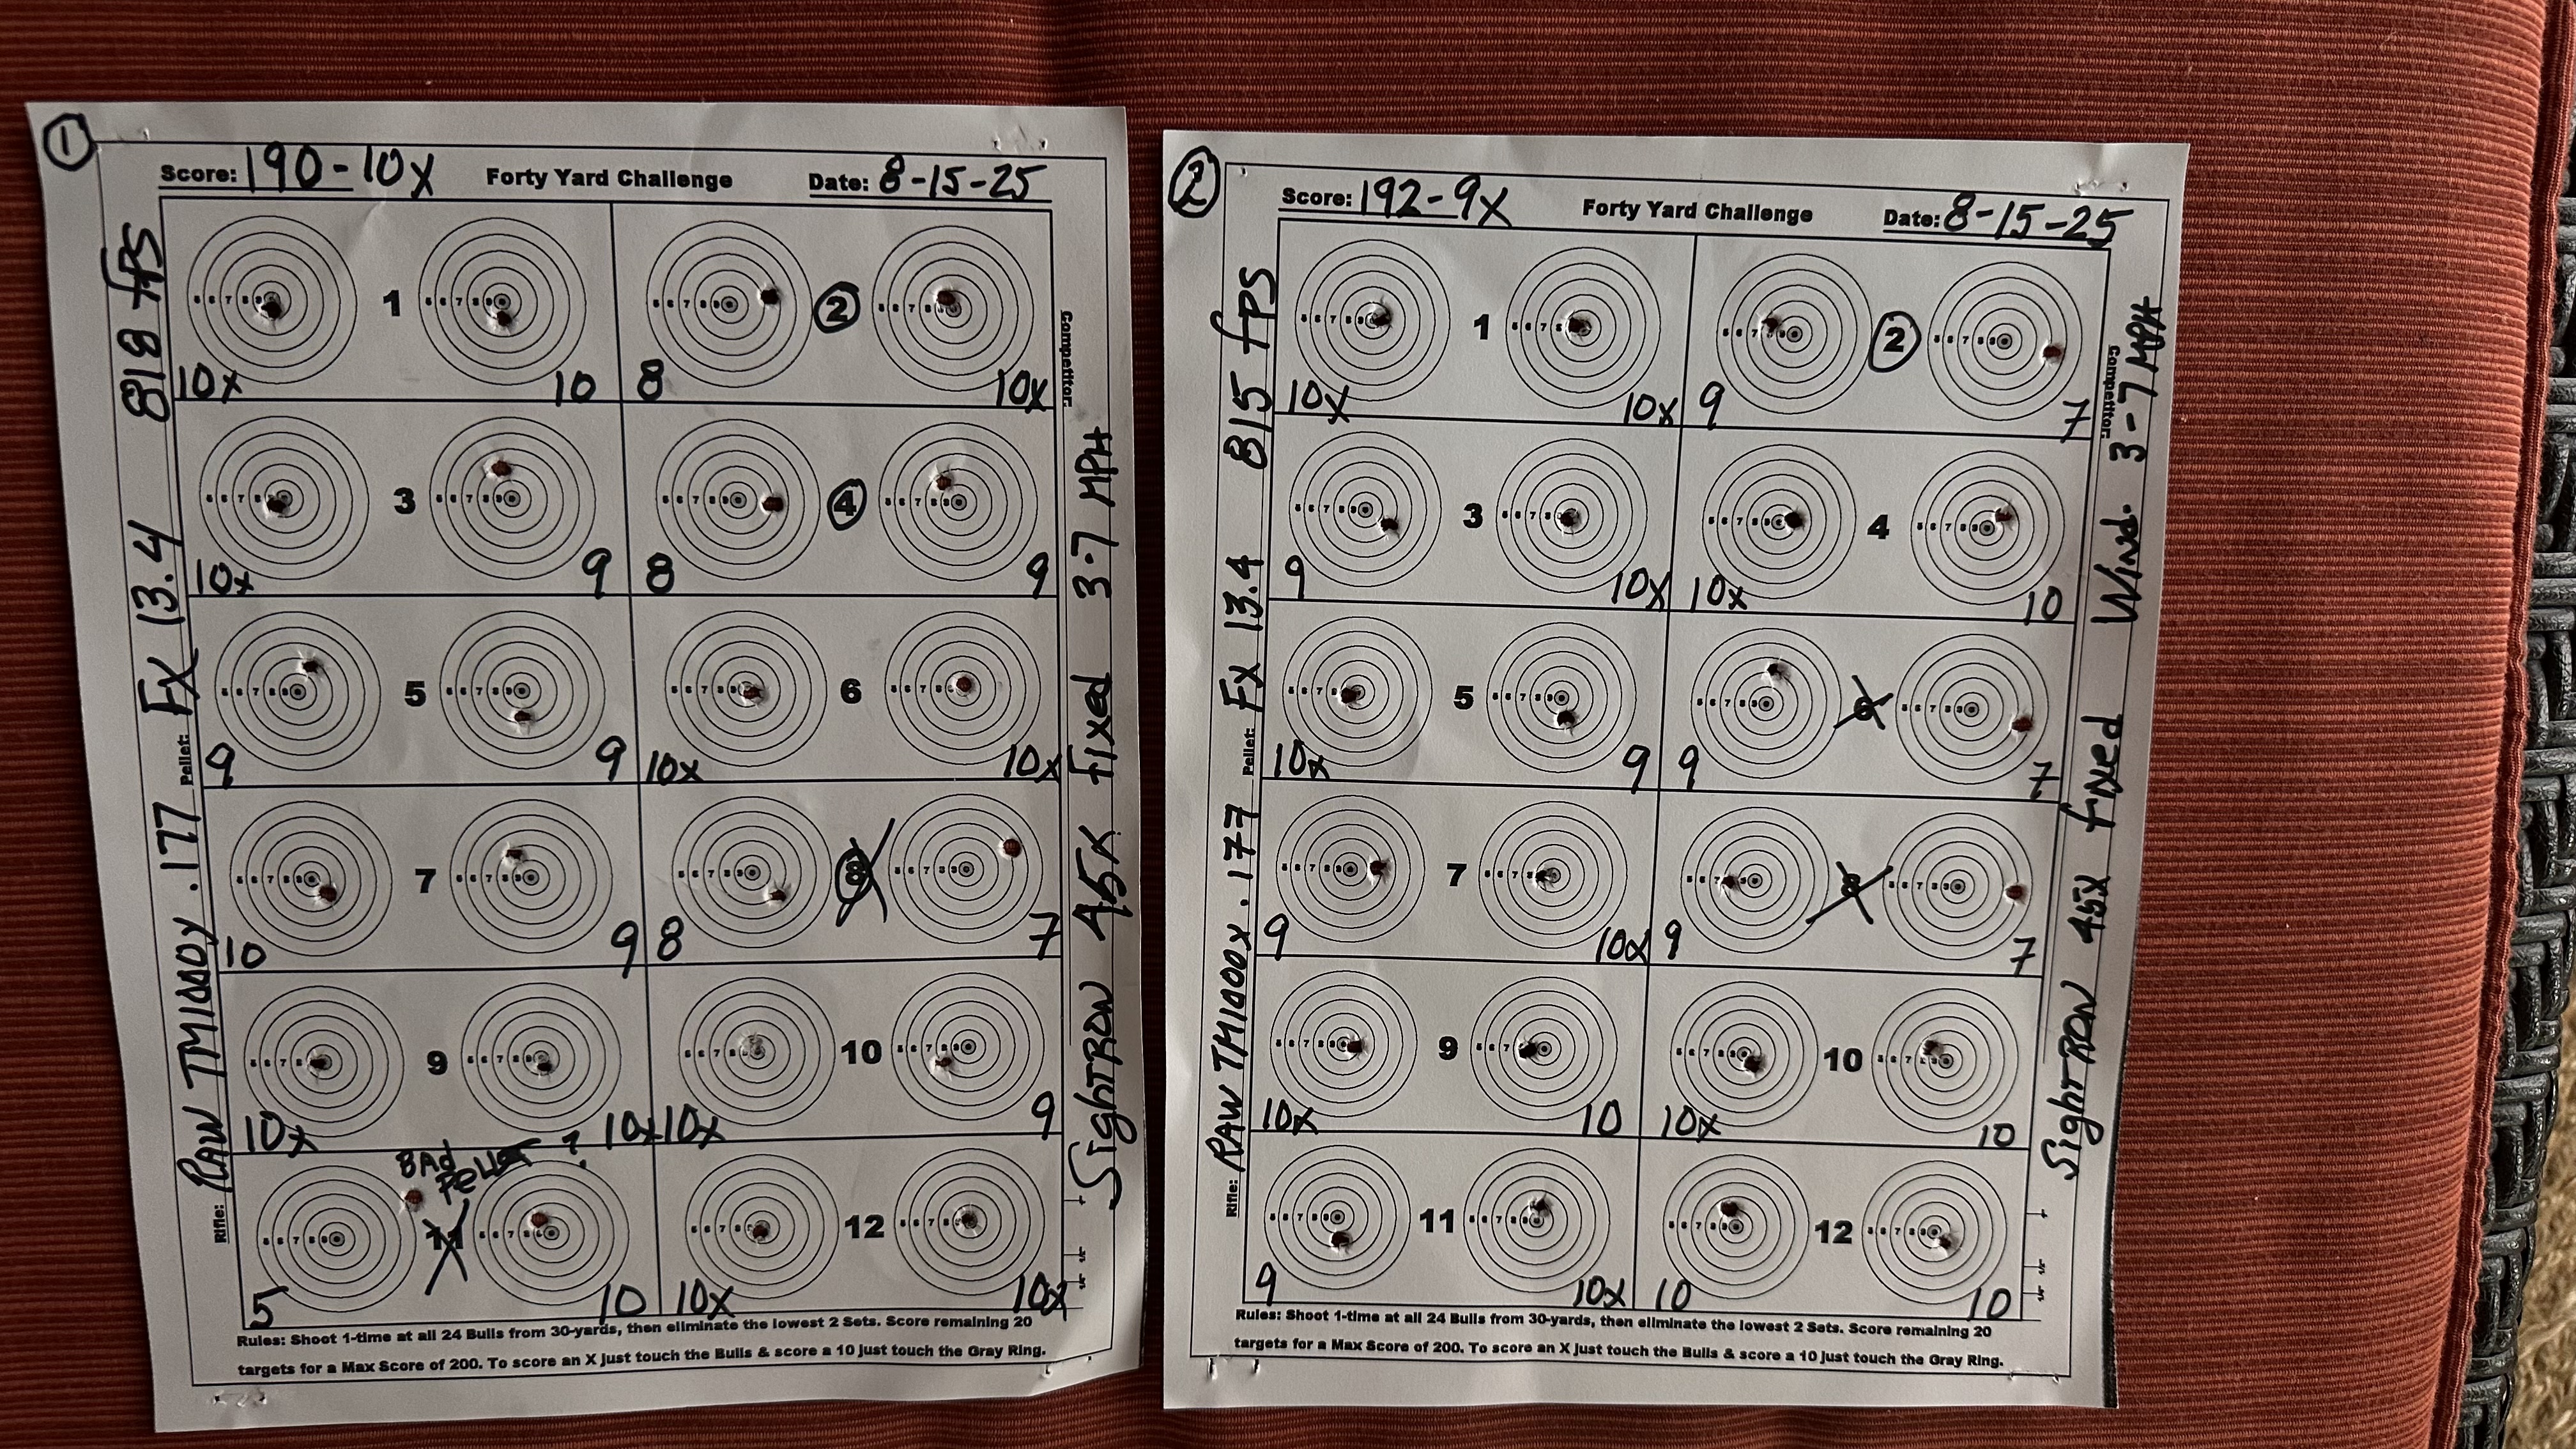 1
Score: 190-10X Forty Yard Challenge Date: 8-15-25
1
10x 10
2
8 10x
3
10x 9
4
8 9
5
9 9
6
10x 10x
7
10 9
8
8 7
9
10x 10x
10
10x 9
BAd
PELLET ?
11
5 10
12
10x 10x
Rules: Shoot 1-time at all 24 Bulls from 30-yards, then eliminate the lowest 2 Sets. Score remaining 20
targets for a Max Score of 200. To score an X just touch the Bulls & score a 10 just touch the Gray Ring.
Rifle: RAW TM1000x .177 Pellet: FX 13.4 818 fPS
Competitor:
SightRON 45x fixed 3-7 MPH
2
Score: 192-9X Forty Yard Challenge Date: 8-15-25
1
10x 10x
2
9 7
3
9 10x
4
10x 10
5
10x 9
6
9 7
7
9 10x
8
9 7
9
10x 10
10
10x 10
11
9 10x
12
10 10
Rules: Shoot 1-time at all 24 Bulls from 30-yards, then eliminate the lowest 2 Sets. Score remaining 20
targets for a Max Score of 200. To score an X just touch the Bulls & score a 10 just touch the Gray Ring.
Rifle: RAW TM1000x .177 Pellet: FX 13.4 815 fPS
Competitor:
SightRON 45x fixed Wind. 3-7 MPH